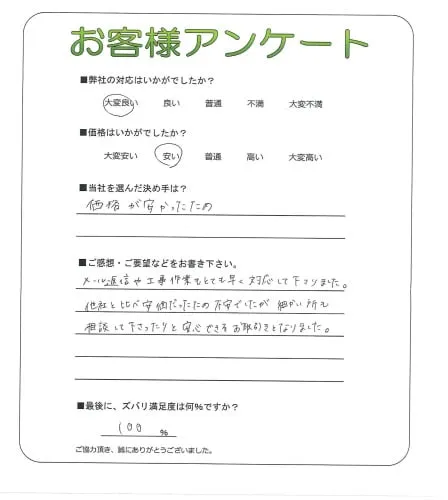 お客様アンケート
■弊社の対応はいかがでしたか？
大変良い 良い 普通 不満 大変不満
■価格はいかがでしたか？
大変安い 安い 普通 高い 大変高い
■当社を選んだ決め手は？
価格が安かったため
■ご感想・ご要望などをお書き下さい。
メール返信や工事作業もとても早く対応して下さりました。
他社と比べ安価だったため不安でしたが細かい所も
相談して下さったりと安心できるお取引きとなりました。
■最後に、ズバリ満足度は何%ですか？
100 %
ご協力頂き、誠にありがとうございました。